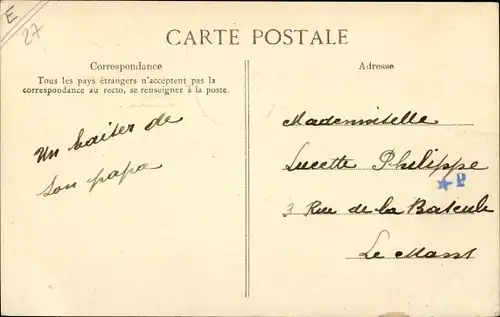 E
27
CARTE POSTALE
Correspondance
Tous les pays étrangers n'acceptent pas la
correspondance au recto, se renseigner à la poste.
Un baiser de
son papa
Adresse
Mademoiselle
Lucette Philippe
P
3 Rue de la Bascule
Le Mans